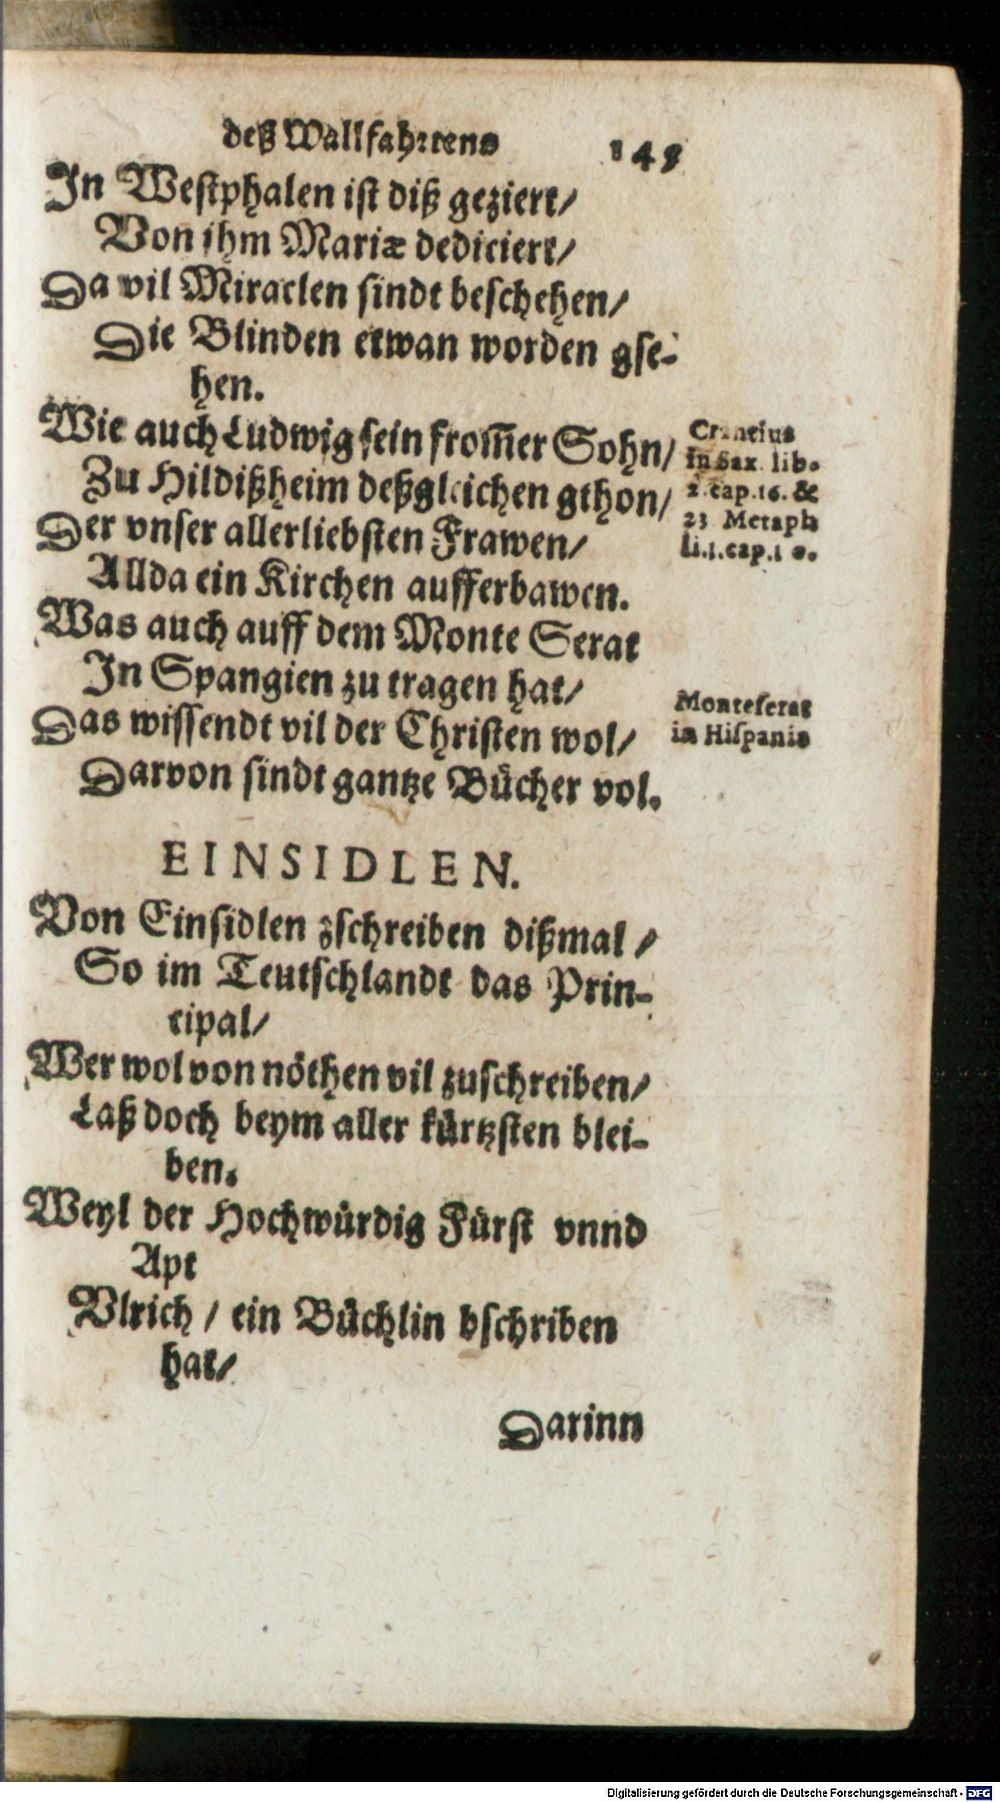 deß Wallfahrtens
In Westphalen ist diß geziert/
Von ihm Mariæ dediciert/
Da vil Miraclen sindt beschehen/
Die Blinden etwan worden gse-
hen.
Wie auch Ludwig sein from̃er Sohn/
Zu Hildißheim deßgleichen gthon/
Der vnser allerliebsten Frawen/
Allda ein Kirchen aufferbawen.
Was auch auff dem Monte Serat
In Spangien zu tragen hat/
Das wissendt vil der Christen wol/
Darvon sindt gantze Bücher vol.
in Sax. lib.
2. cap. 16. &
23 Metaph
li.1.cap.1 0.
Monteserat
in Hispania
EINSIDLEN.
Von Einsidlen zschreiben dißmal /
So im Teutschlandt das Prin-
cipal/
Wer wol von nöthen vil zuschreiben/
Laß doch beym aller kürtzsten blei-
ben.
Weyl der Hochwürdig Fürst vnnd
Apt
Vlrich / ein Büchlin bschriben
hat/
Darinn
Digitalisierung gefördert durch die Deutsche Forschungsgemeinschaft - DFG